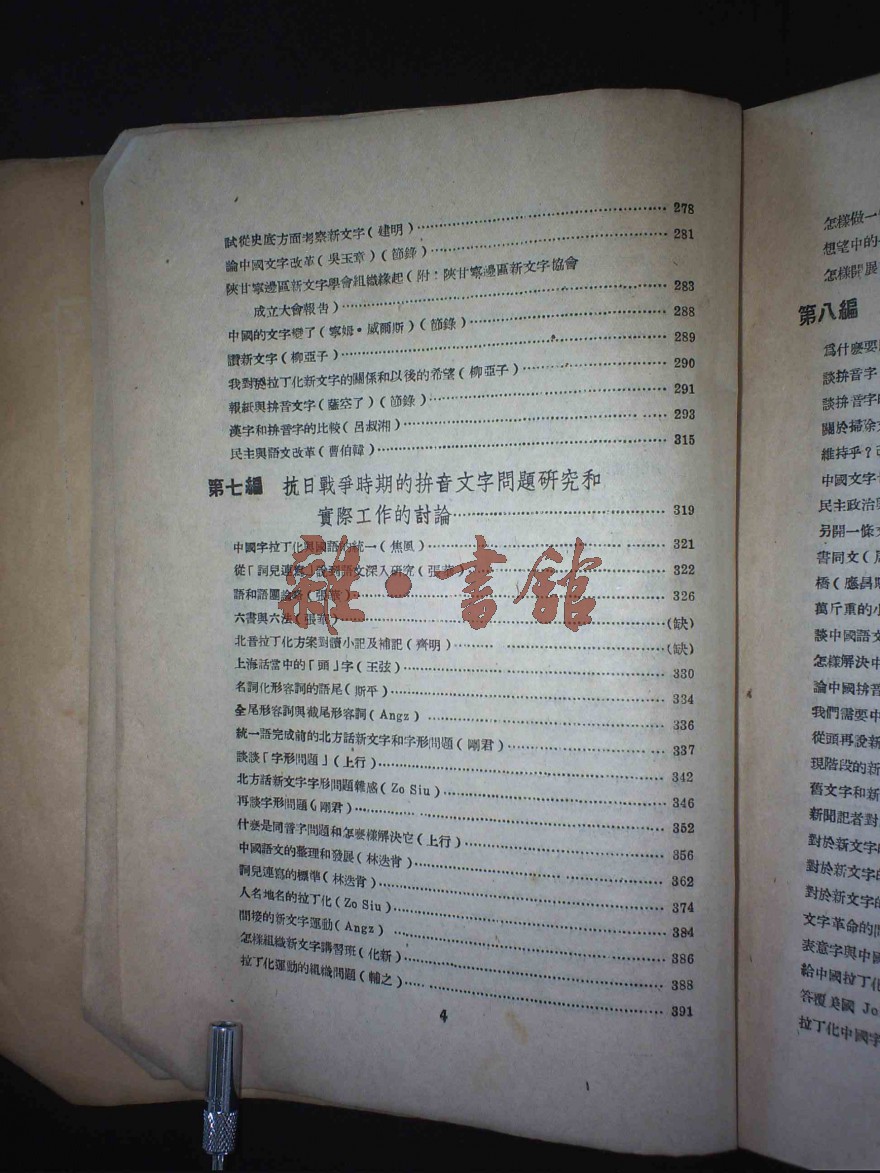 試從史底方面考察新文字(建明)……………………278
論中國文字改革(吳玉章)(節錄)……………………281
陝甘寧邊區新文字學會組織緣起(附：陝甘寧邊區新文字協會
成立大會報告)……………………283
中國的文字變了(寧姆·威爾斯)(節錄)……………………288
讚新文字(柳亞子)……………………289
我對於拉丁化新文字的關係和以後的希望(柳亞子)……………………290
報紙與拼音文字(薩空了)(節錄)……………………291
漢字和拼音字的比較(呂叔湘)……………………293
民主與語文改革(曹伯韓)……………………315
第七編 抗日戰爭時期的拼音文字問題研究和
實際工作的討論……………………319
中國字拉丁化與國語的統一(焦風)……………………321
從「詞兒連寫」說到語文深入研究(張華)……………………322
語和語團論略(張華)……………………326
六書與六法(張華)……………………(缺)
北音拉丁化方案對讀小記及補記(齊明)……………………(缺)
上海話當中的「頭」字(王弦)……………………330
名詞化形容詞的語尾(斯平)……………………334
全尾形容詞與截尾形容詞(Angz)……………………336
統一語完成前的北方話新文字和字形問題(剛君)……………………337
談談「字形問題」(上行)……………………342
北方話新文字字形問題雜感(Zo Siu)……………………346
再談字形問題(剛君)……………………352
什麼是同音字問題和怎麼樣解決它(上行)……………………356
中國語文的整理和發展(林迭肯)……………………362
詞兒連寫的標準(林迭肯)……………………374
人名地名的拉丁化(Zo Siu)……………………384
間接的新文字運動(Angz)……………………386
怎樣組織新文字講習班(化新)……………………388
拉丁化運動的組織問題(輔之)……………………391
4
雜·書館
怎樣做一
想望中的
怎樣開展
第八編
爲什麼要
談拼音字
談拼音字的
關於掃除
維持乎？
中國文字
民主政治
另開一條
書同文(
橋(應昌
萬斤重的小
談中國語文
怎樣解決中
論中國拼音
我們需要中
從頭再說新
現階段的新
舊文字和新
新聞記者對
對於新文字的
對於新文字的
對於新文字的
文字革命的
表意字與中國
給中國拉丁化
答覆美國 Jo
拉丁化中國字